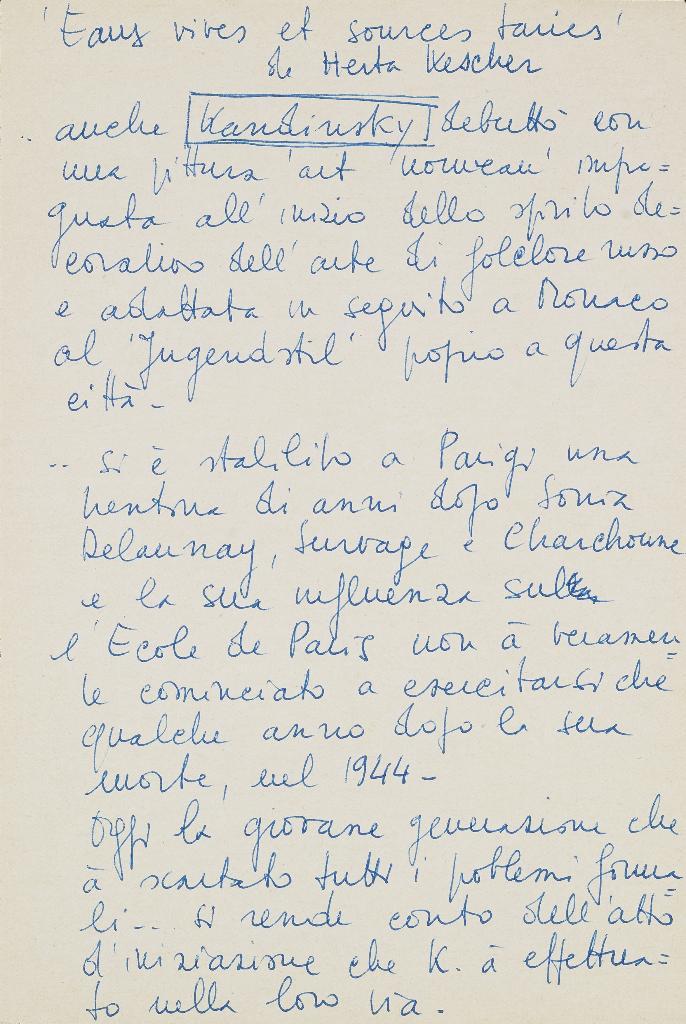 'Eaux vives et sources taries'
de Herta Wescher
.. anche Kandinsky debuttò con
una pittura 'art nouveau' impre=
gnata all' inizio dello spirito de=
corativo dell' arte di folclore russo
e adattata in seguito a Monaco
al 'Jugendstil' proprio a questa
città -
.. si è stabilito a Parigi una
ventina di anni dopo Sonia
Delaunay, Survage e Charchoune
e la sua influenza sul
l' Ecole de Paris non à veramen=
te cominciato a esercitarsi che
qualche anno dopo la sua
morte, nel 1944 -
Oggi la giovane generazione che
à scartato tutti i problemi forma
li .. si rende conto dell' atto
d' iniziazione che K. à effettua=
to nella loro via.